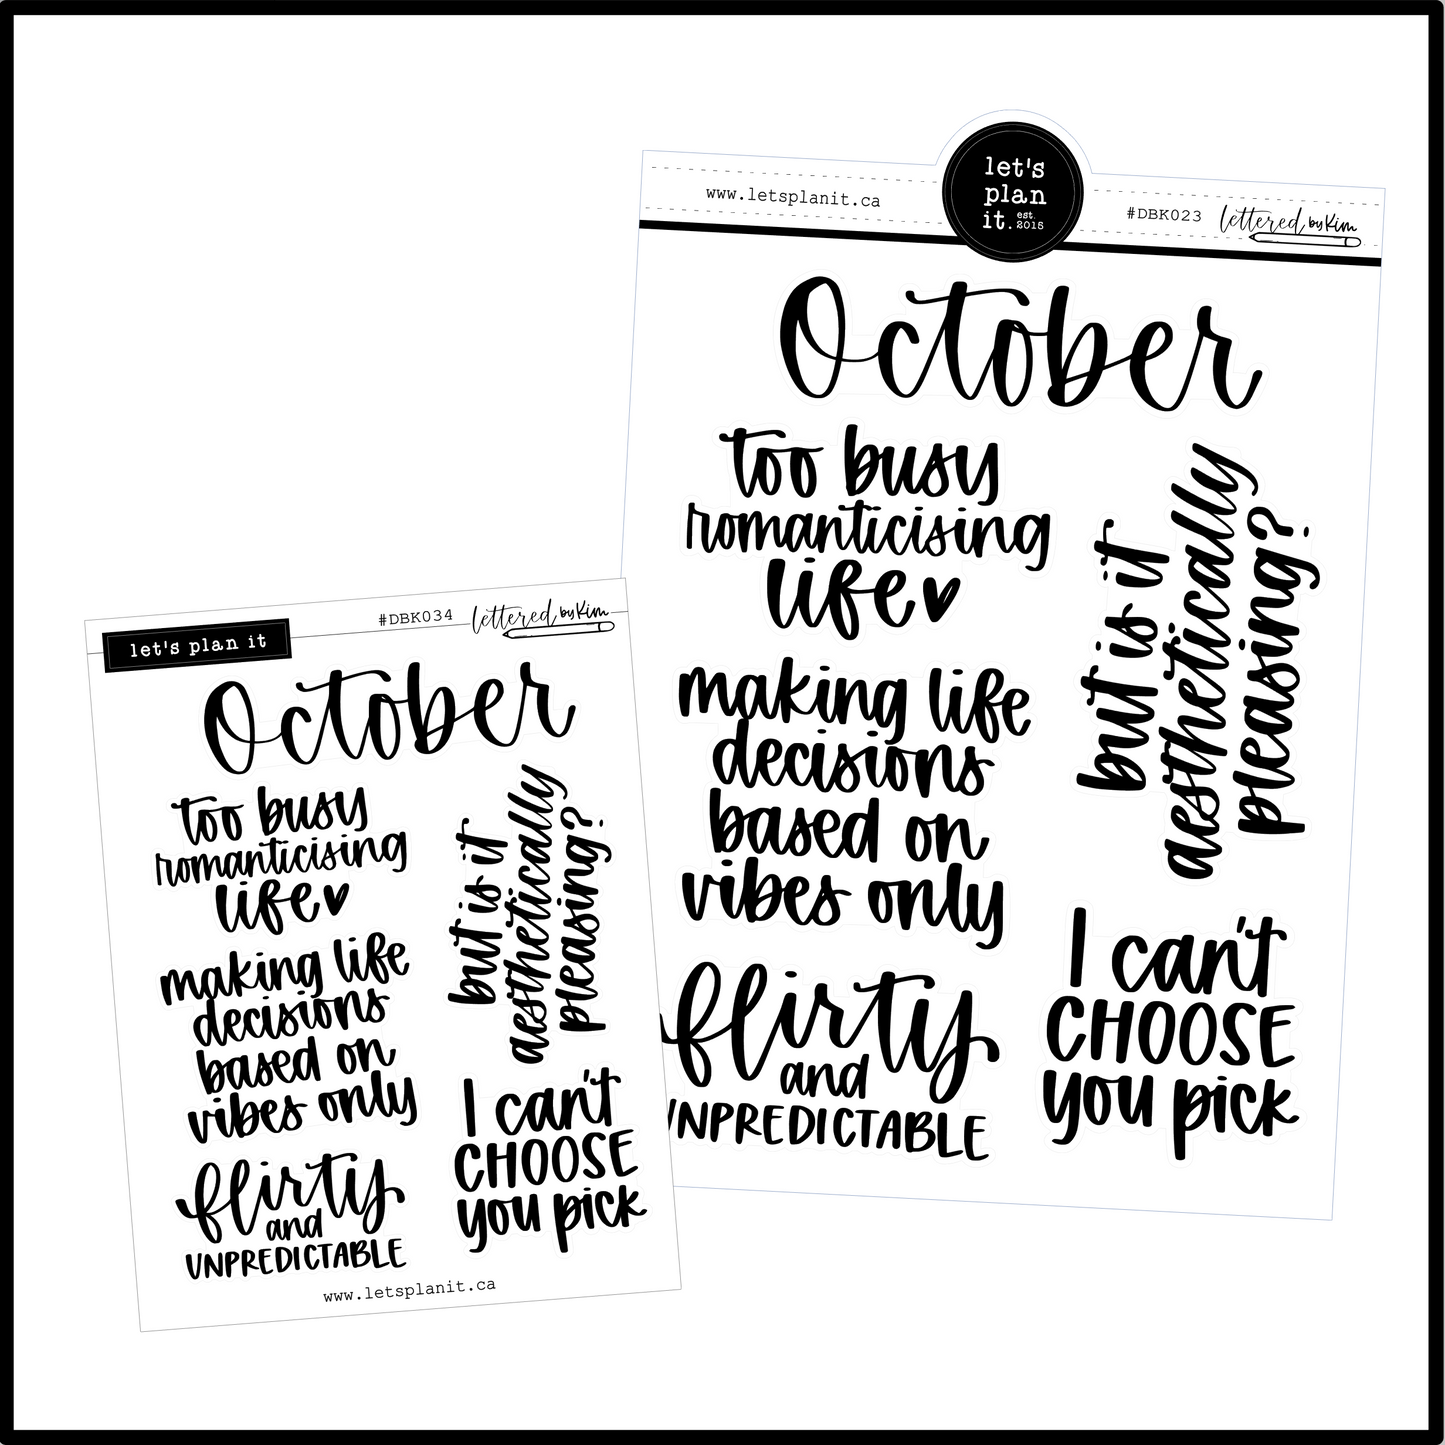 let's
plan
it. est. 2015
www.letsplanit.ca
#DBK023 lettered by Kim
October
too busy
romanticising
life
but is it
aesthetically
pleasing?
making life
decisions
based on
vibes only
flirty
and
UNPREDICTABLE
I can't
CHOOSE
you pick
let's plan it
#DBK034 lettered by Kim
October
too busy
romanticising
life
but is it
aesthetically
pleasing?
making life
decisions
based on
vibes only
flirty
and
UNPREDICTABLE
I can't
CHOOSE
you pick
www.letsplanit.ca